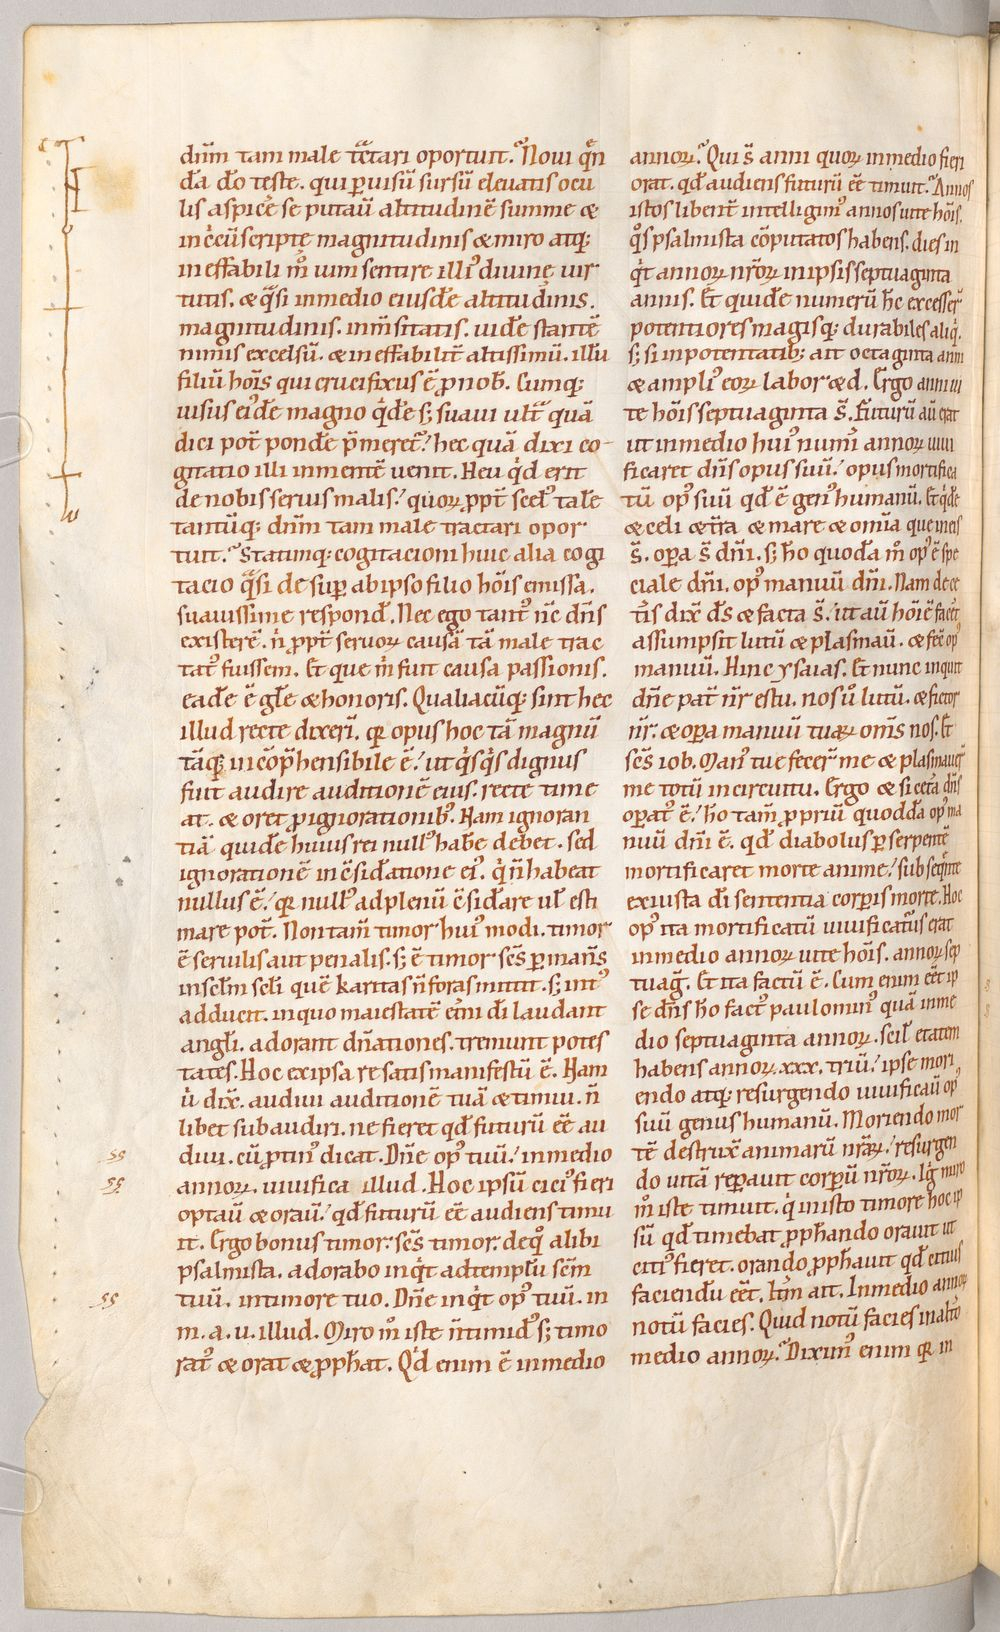 dnm̄ tam male tractari oportuit. Noui qn̄
da do teste. qui p uisu sursu eleuatis ocu
lis aspice se putau altitudine summe &
incc̄uscripte magnitudinis & miro atq;
ineffabili m̄ uim sentire illi' diuine uir
tutis. & qsi inmedio eiusde altitudinis.
magnitudinis. inm̄sitatis. uide stante
nimis excelsū. & ineffabilit altissimū. illū
filiū hoīs qui crucifixus ē p nob. Cumq;
uisus ei'de magno qde s; suaui ult quā
dici pot ponde pmeret? hec quā dixi co-
gitatio illi inmente uenit. Heu qd erit
de nobis seruis malis? quoꝝ ppt scel' tale
tantūq; dnm̄ tam male tractari opor
tuit. Statimq; cogitacioni huic alia cogi
tacio qsi de sup ab ipso filio hoīs emissa.
suauissime respond. Nec ego tant' nc dn̄s
existerē. n ppt seruoꝝ causā tā male trac
tat' fuissem. Et que m fuit causa passionis.
eade ē gle & honoris. Qualiacūq; sint hec
illud recte dixeri. qꝛ opus hoc tā magnū
tāqꝫ incōphensibile ē? ut qsqs dignus
fuit audire auditionē eius. recte time
at. & oret p ignorationib'. Nam ignoran
tiā quide huius rei null' habe debet. sed
ignorationē incsidatione ei'. q n habeat
nullus ē? qꝛ null' ad plenū csidare ul esti
mare pot. Non tam timor hui' modi. timor
ē seruilis aut penalis. s; ē timor scs pmans
in sclm scli quē karitas n foras mittit. s; int'
adducit. in quo maiestatē etni di laudant
angli. adorant dn̄ationes. tremunt potes
tates. Hoc ex ipsa re satis manifestū ē. Nam
u dix. audiui auditionē tuā & timui. n
libet subaudiri. ne fieret qd futurū eē au
diui. cū ptin' dicat. Dn̄e op' tuū? inmedio
annoꝝ. uiuifica illud. Hoc ipsū cici' fieri
optaū & oraū? qd futurū eē audiens timu
it. Ergo bonus timor. scs timor. de q alibi
psalmista. adorabo inqt ad templū scm
tuū. in timore tuo. Dn̄e inqt op' tuū. in
m. a. u. illud. Miro m iste n timid' s; timo
rat' & orat & pphat. Qd enim ē inmedio
annoꝝ? Qui s anni quoꝝ inmedio fieri
orat. qd audiens futurū eē timuit? Annos
istos libent intelligim' annos uite hoīs.
qs psalmista cōputatos habens. dies in
qt annoꝝ nroꝝ in ipsis septuaginta
annis. Et quide numerū hc excesser
potentiores magisq; durabiles aliq.
s; si inpotentatib; ait octaginta anni
& ampli' eoꝝ labor & d. Ergo anni ui
te hoīs septuaginta s. Futurū aū erat
ut inmedio hui' num'i annoꝝ uiui
ficaret dn̄s opus suū? opus mortifica
tū op' suū qd ē gen' humanū. Et qde
& celi & tra & mare & omīa que in eis
s. opa s dn̄i. s; ho quoda m op' ē spe
ciale dn̄i. op' manuū dn̄i. Nam de ce
tis dix ds & facta s? ut aū hoīē facet
assumpsit lutū & plasmaū. & fec op'
manuū. Hinc ysaias. Et nunc inquit
dn̄e pat nr es tu. nos u lutū. & fictor
nr. & opa manuū tuaꝝ oms nos. Et
scs iob. Man' tue fecer me & plasmauer
me totū in circuitu. Ergo & si cetā dn̄s
opat ē? ho tam p priū quodda op' ma
nuū dn̄i ē. qd diabolus p serpentē
mortificaret morte anime? subseqnte
ex iusta di sententia corpis morte. Hoc
op' ita mortificatū uiuificatus erat
inmedio annoꝝ uite hoīs. annoꝝ sep
tuag. Et ita factū ē. Cum enim eēt ip
se dn̄s ho fact' paulomin' quā inme
dio septuaginta annoꝝ. scil etatem
habens annoꝝ .xxx. triū? ipse mori
endo atq; resurgendo uiuificaū op'
suū genus humanū. Moriendo mor
tē destrux animarū nraꝝ? resurgen
do uitā repauit corpū nroꝝ. Ig miro
m iste timuit. q in isto timore hoc ip
sū qd timebat pphando orauit ut
citi' fieret. orando pphauit qd citius
faciendū eēt. Itm ait. Inmedio annoꝝ
notū facies. Quid notū facies in alto
medio annoꝝ? Dixim' enim qꝛ in
ss
ss
ss